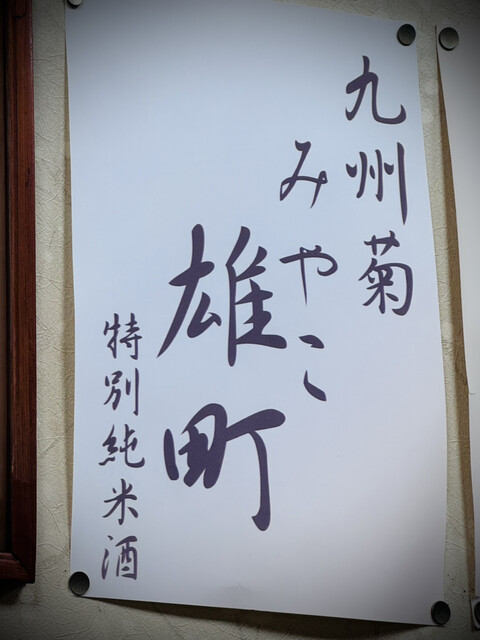 九州菊
みやこ
雄町
特別純米酒